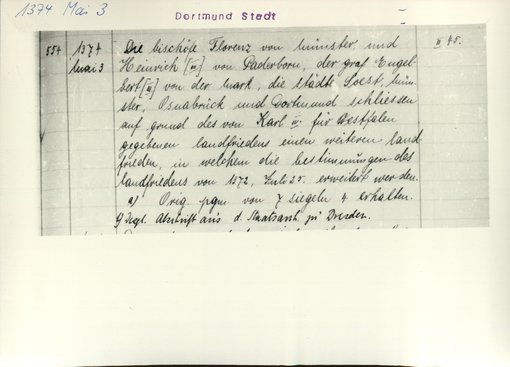 1374 Mai 3
Dortmund Stadt
554 1374 Die bischöfe Florenz von münster und II 75.
mai 3 Heinrich [III] von Paderborn, der graf Engel-
bert [III] von der mark, die städte Soest, mün-
ster, Osnabrück und Dortmund schliessen
auf grund des von Karl IV. für Westfalen
gegebenen landfriedens einen weiteren land-
frieden, in welchem die bestimmungen des
landfriedens von 1372, Juli 25. erweitert werden.
a) Orig. pgm von 7 siegeln 4 erhalten.
b) Vegl. Abschrift aus d. Staatsarch. zu Dresden.